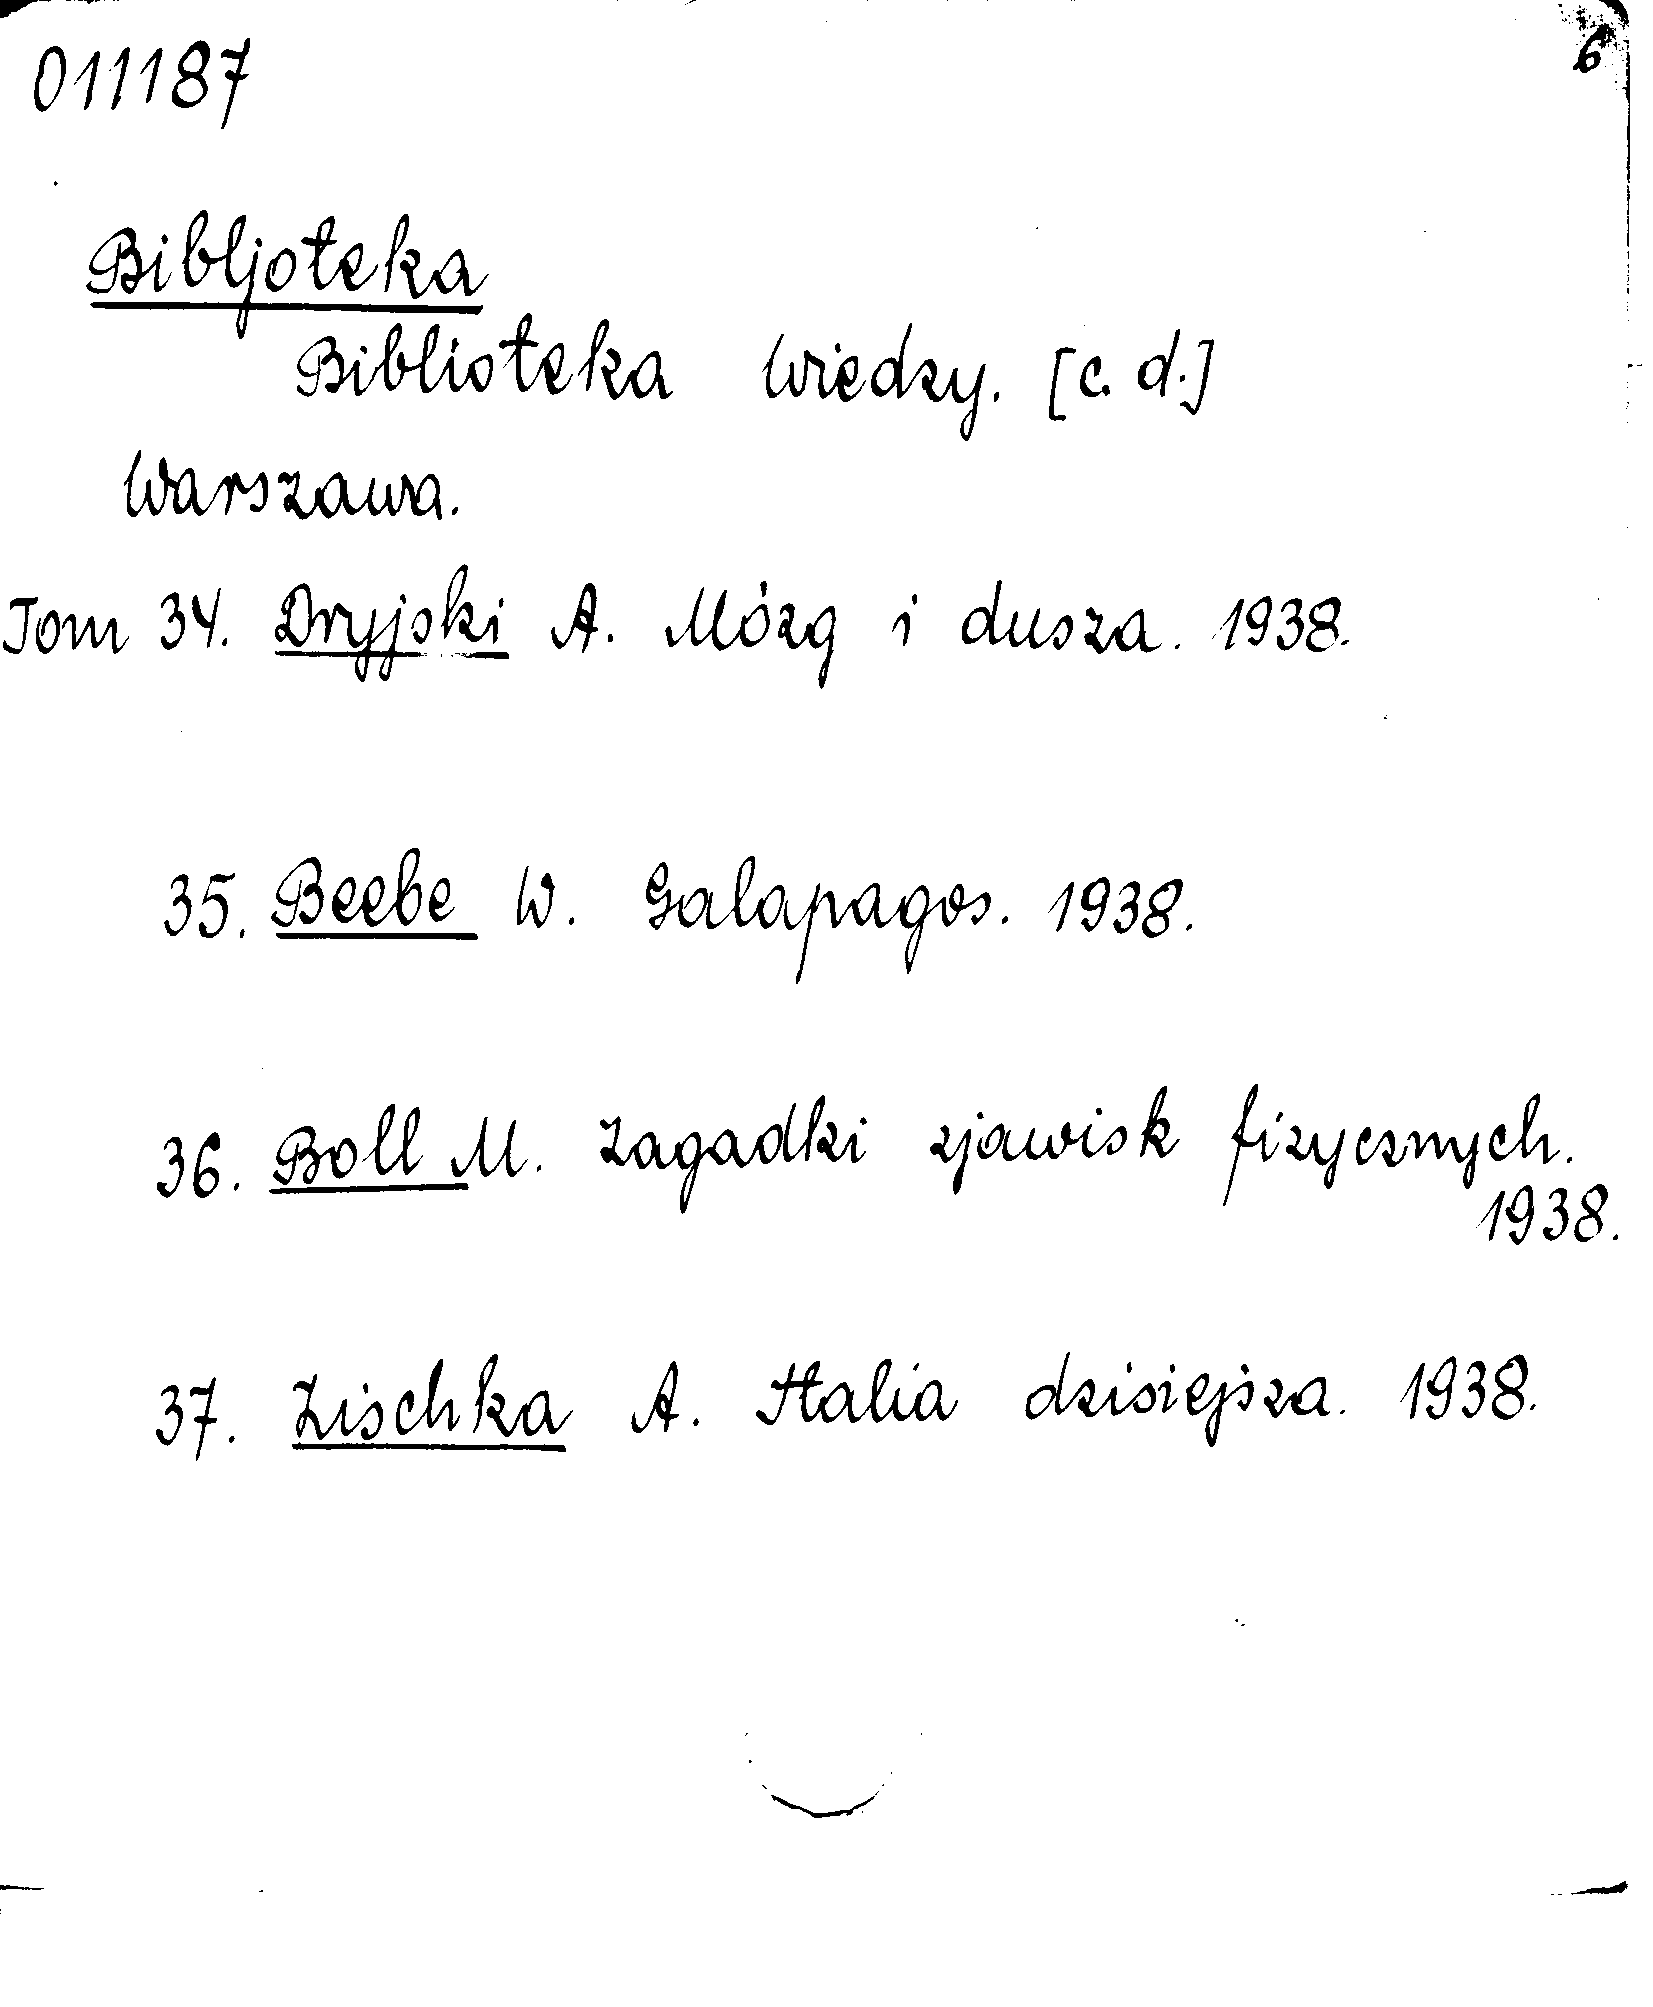 011187
6
Bibljoteka
Biblioteka Wiedzy. [c. d.]
Warszawa.
Tom 34. Dryjski A. Mózg i dusza. 1938.
35. Beebe W. Galapagos. 1938.
36. Boll M. Zagadki zjawisk fizycznych.
1938.
37. Zischka A. Italia dzisiejsza. 1938.